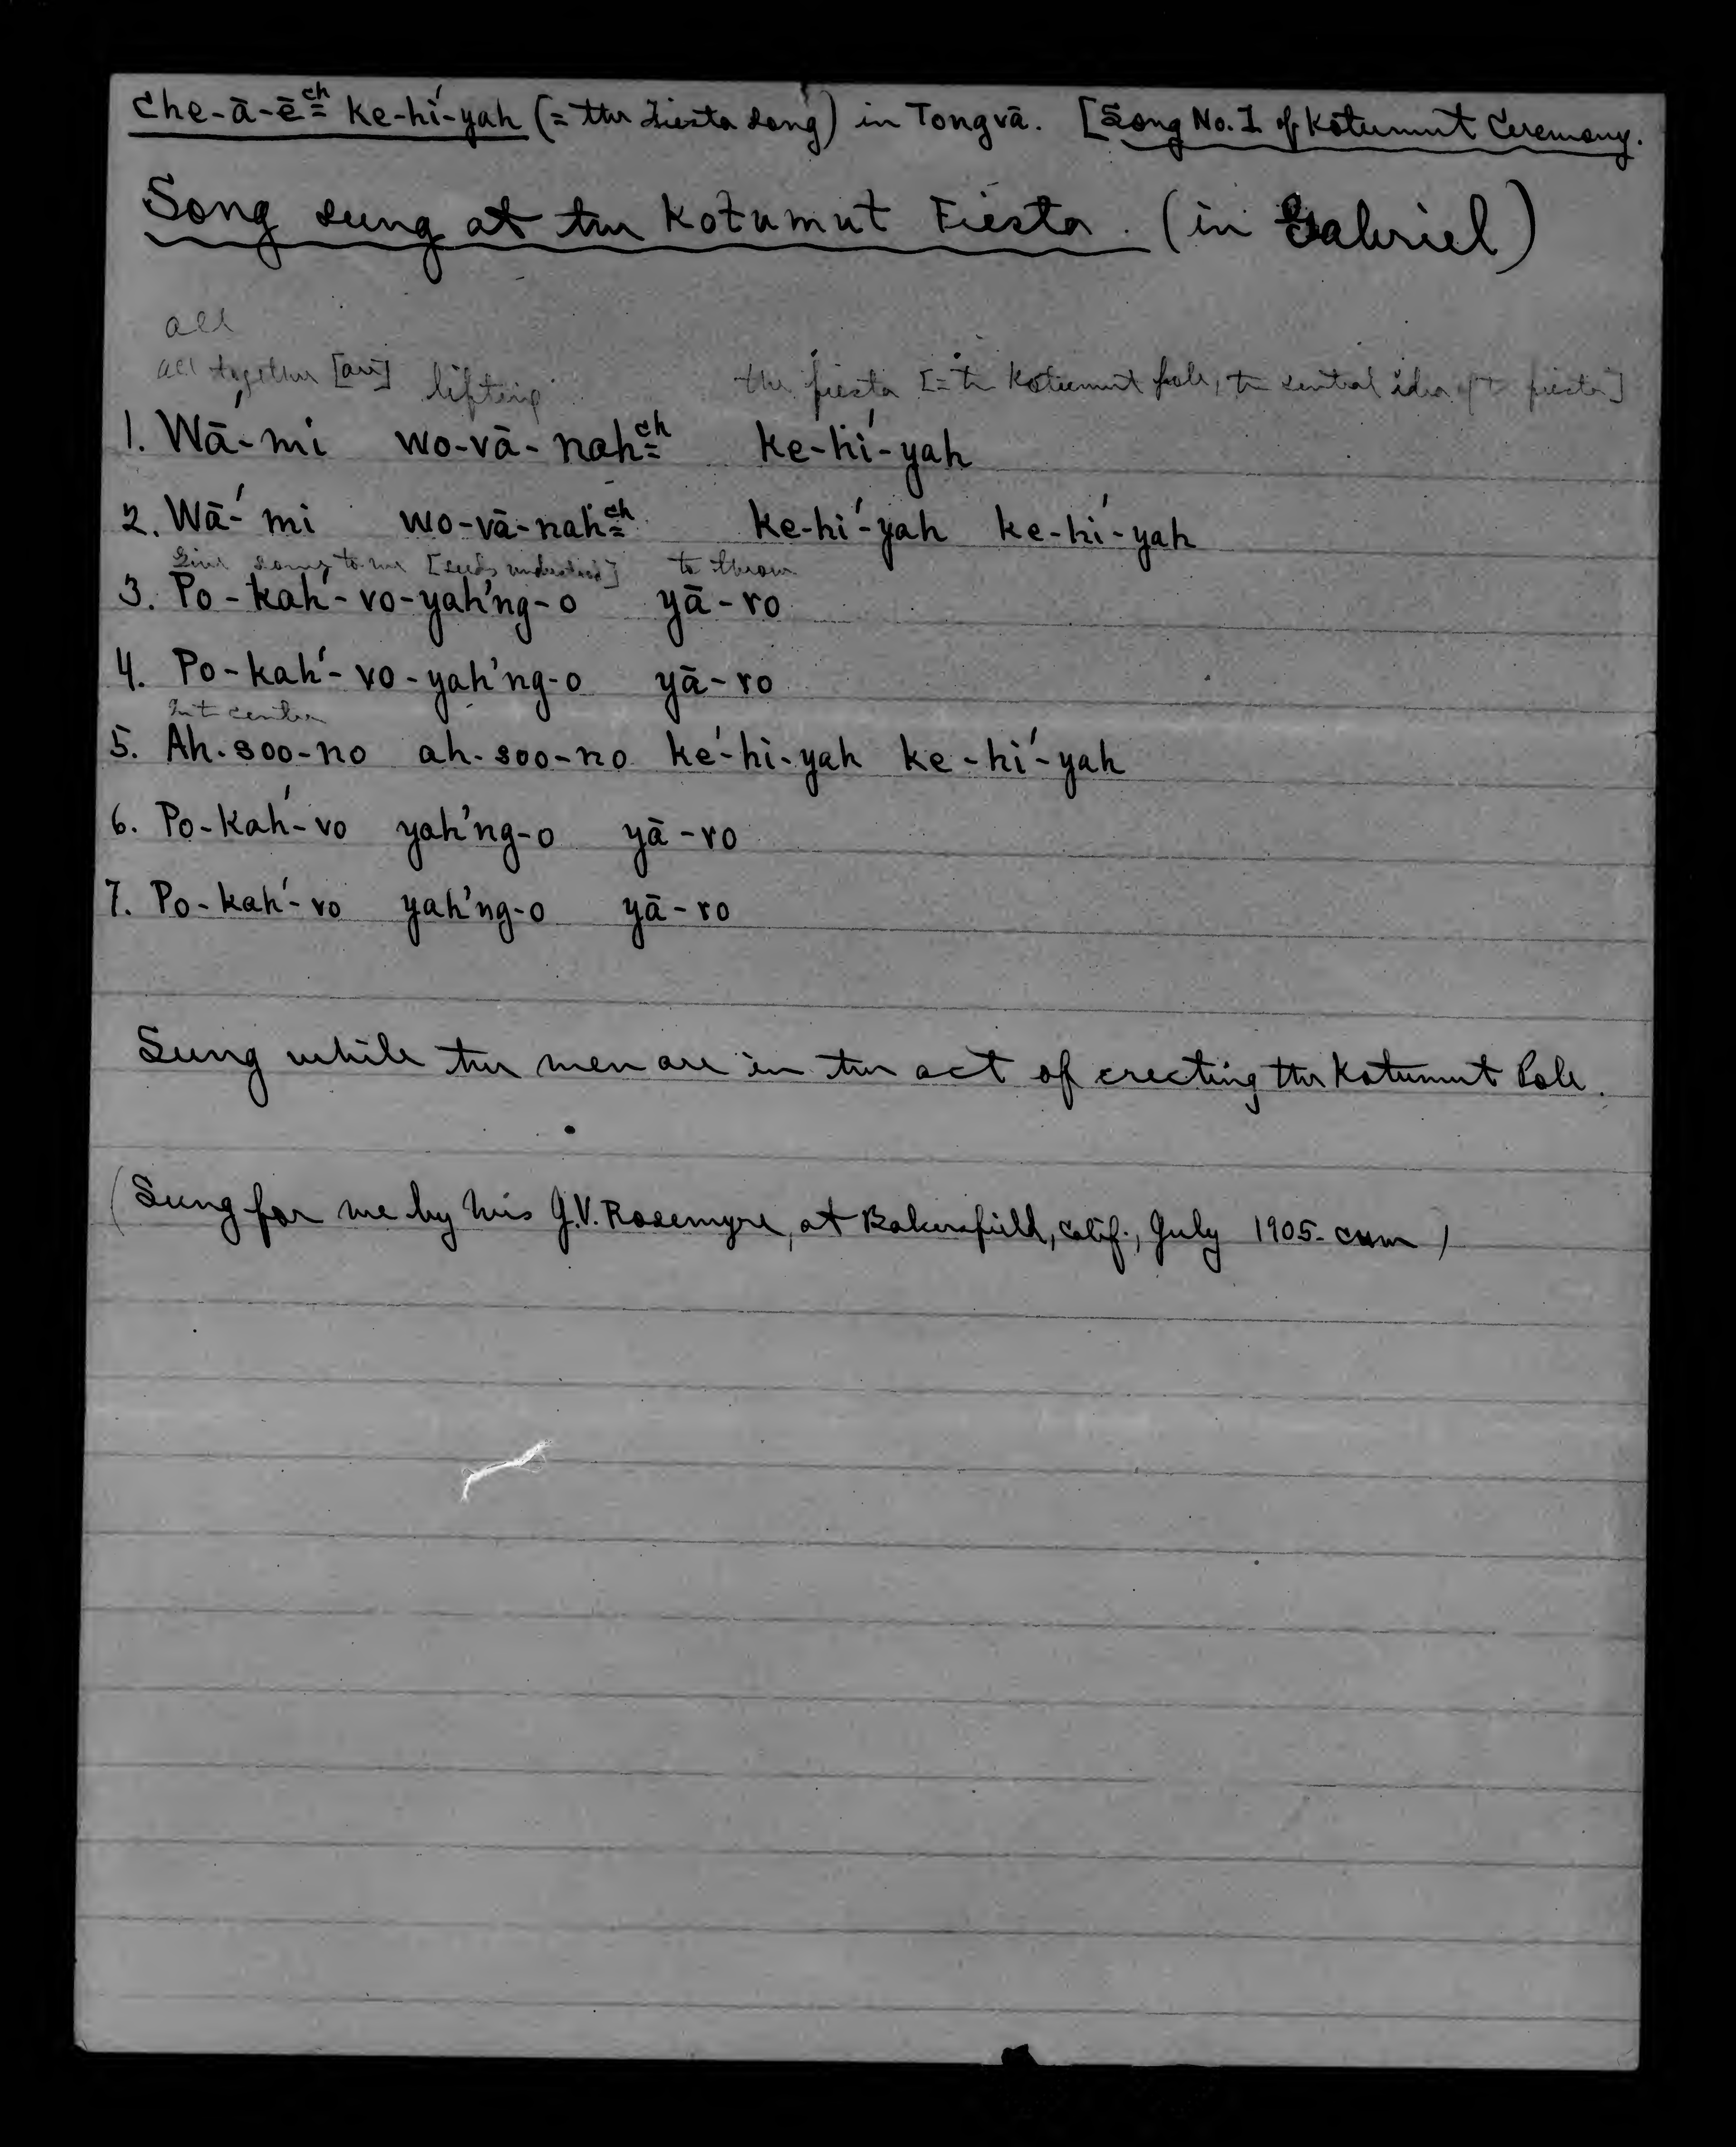 Che-ā-ēᶜʰ ke-hí-yah (= the fiesta song) in Tongvā. [Song No. 1 of Kotumut Ceremony.
Song sung at the Kotumut Fiesta. (in Gabriel)
all
all together [are] lifting the fiesta [= the Kotumut pole, the central idea of the fiesta]
1. Wā́-mi wo-vā-nahᶜʰ ke-hí-yah
2. Wā-́mi wo-vā-nahᶜʰ ke-hi-́yah ke-hí-yah
Give some to me [seeds understood] to throw
3. Po-kah́-vo-yah'ng-o yā-ro
4. Po-kah́-vo-yah'ng-o yā-ro
In the center
5. Ah-soo-no ah-soo-no ké-hi-yah ke-hí-yah
6. Po-kah́-vo yah'ng-o yā-ro
7. Po-kah́-vo yah'ng-o yā-ro
Sung while the men are in the act of erecting the Kotumut Pole.
(Sung for me by Mrs J.V. Rosemyre, at Bakersfield, Calif., July 1905. CHM)